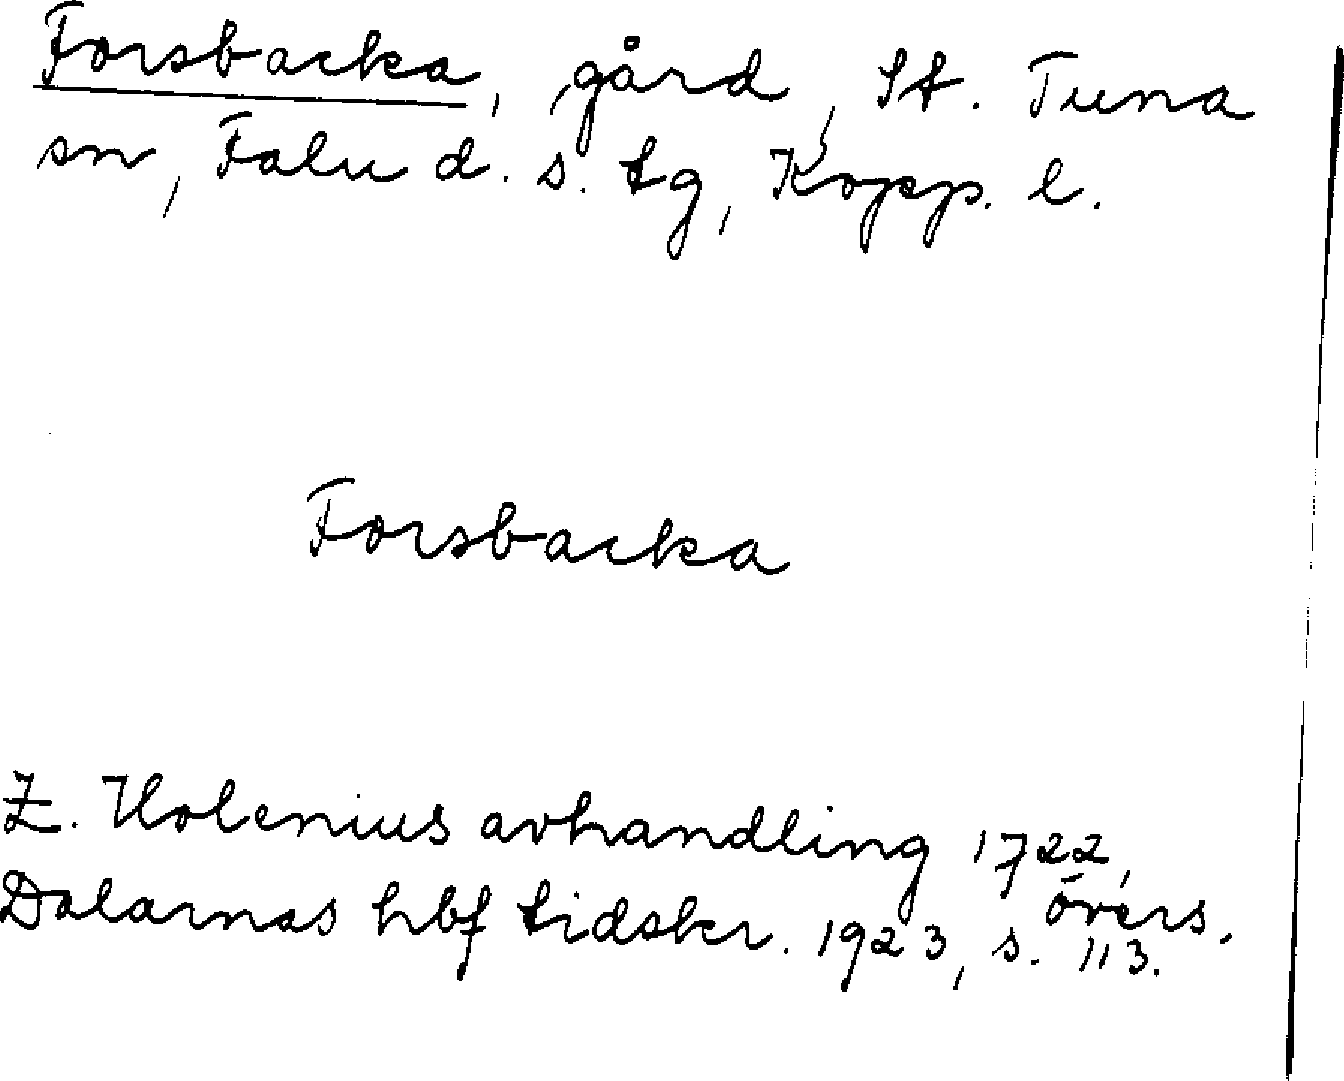 Forsbacka, gård, St. Tuna
sn, Falu d. s. tg, Kopp. l.
Forsbacka
Z. Holenius avhandling 1722,
övers.
Dalarnas hbf tidskr. 1923, s. 113.